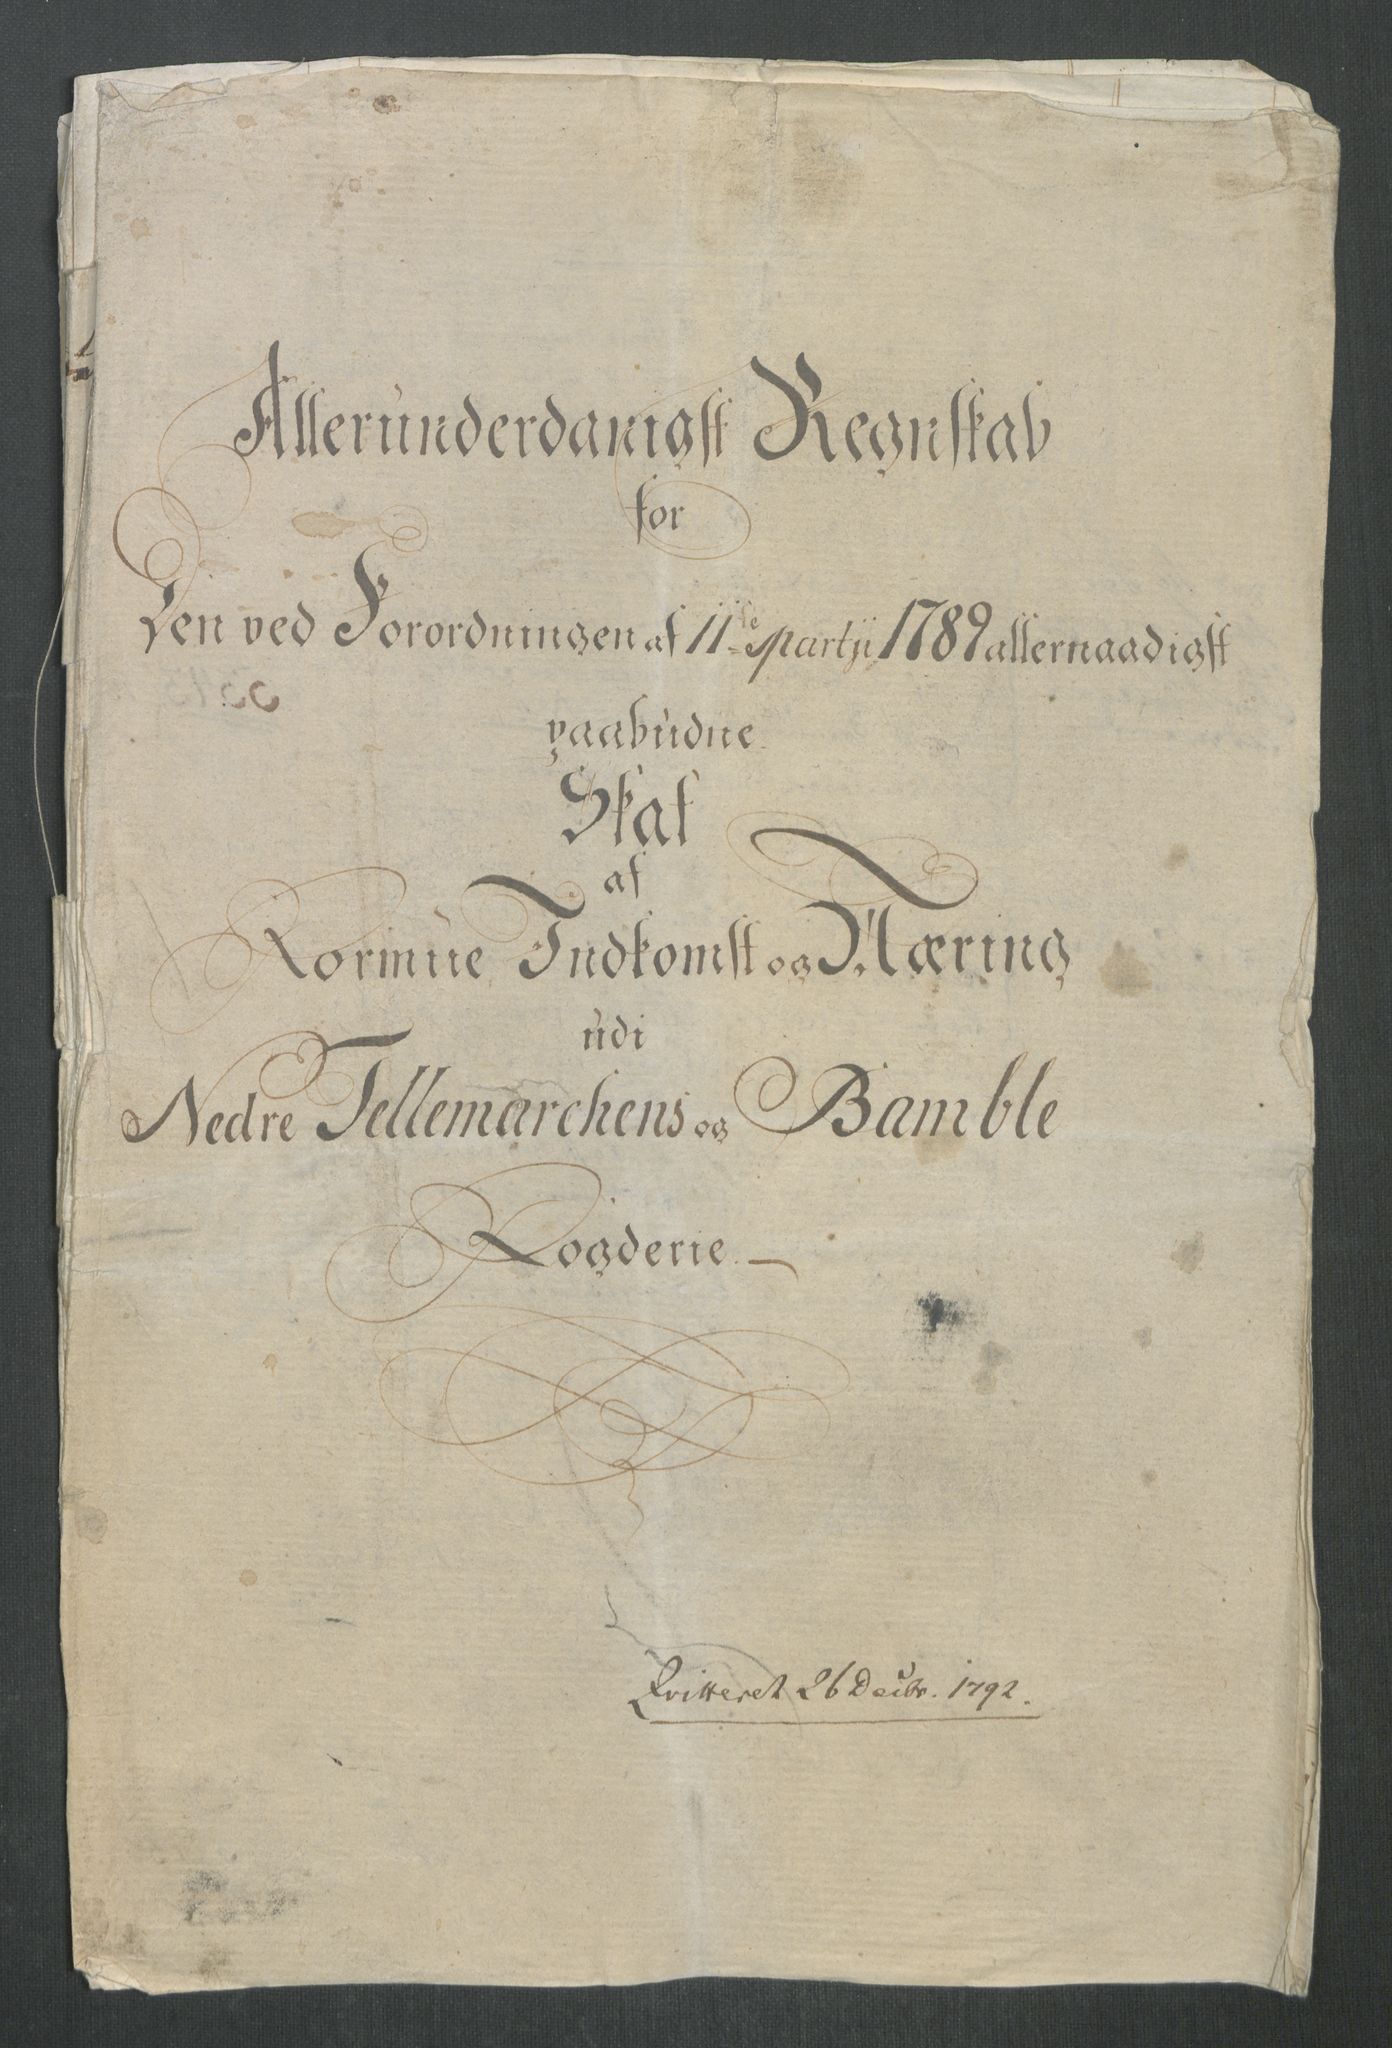 Allerunderdanigst Regnskab
for
Den ved Forordningen af 11te Martji 1789 allernaadigst
paabudne
Skat
af
Formue Indkomst og Næring
udi
Nedre Tellemarchens og Bamble
Fogderie.
Qvitteret 26 Decbr. 1792.